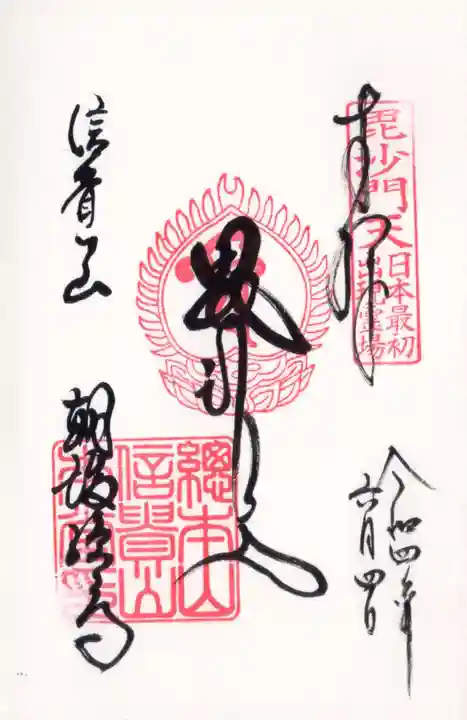 奉拝
毘沙門天
日本最初
出現霊場
令和四年
六月四日
總本山
信貴山
信貴山
朝護孫子寺